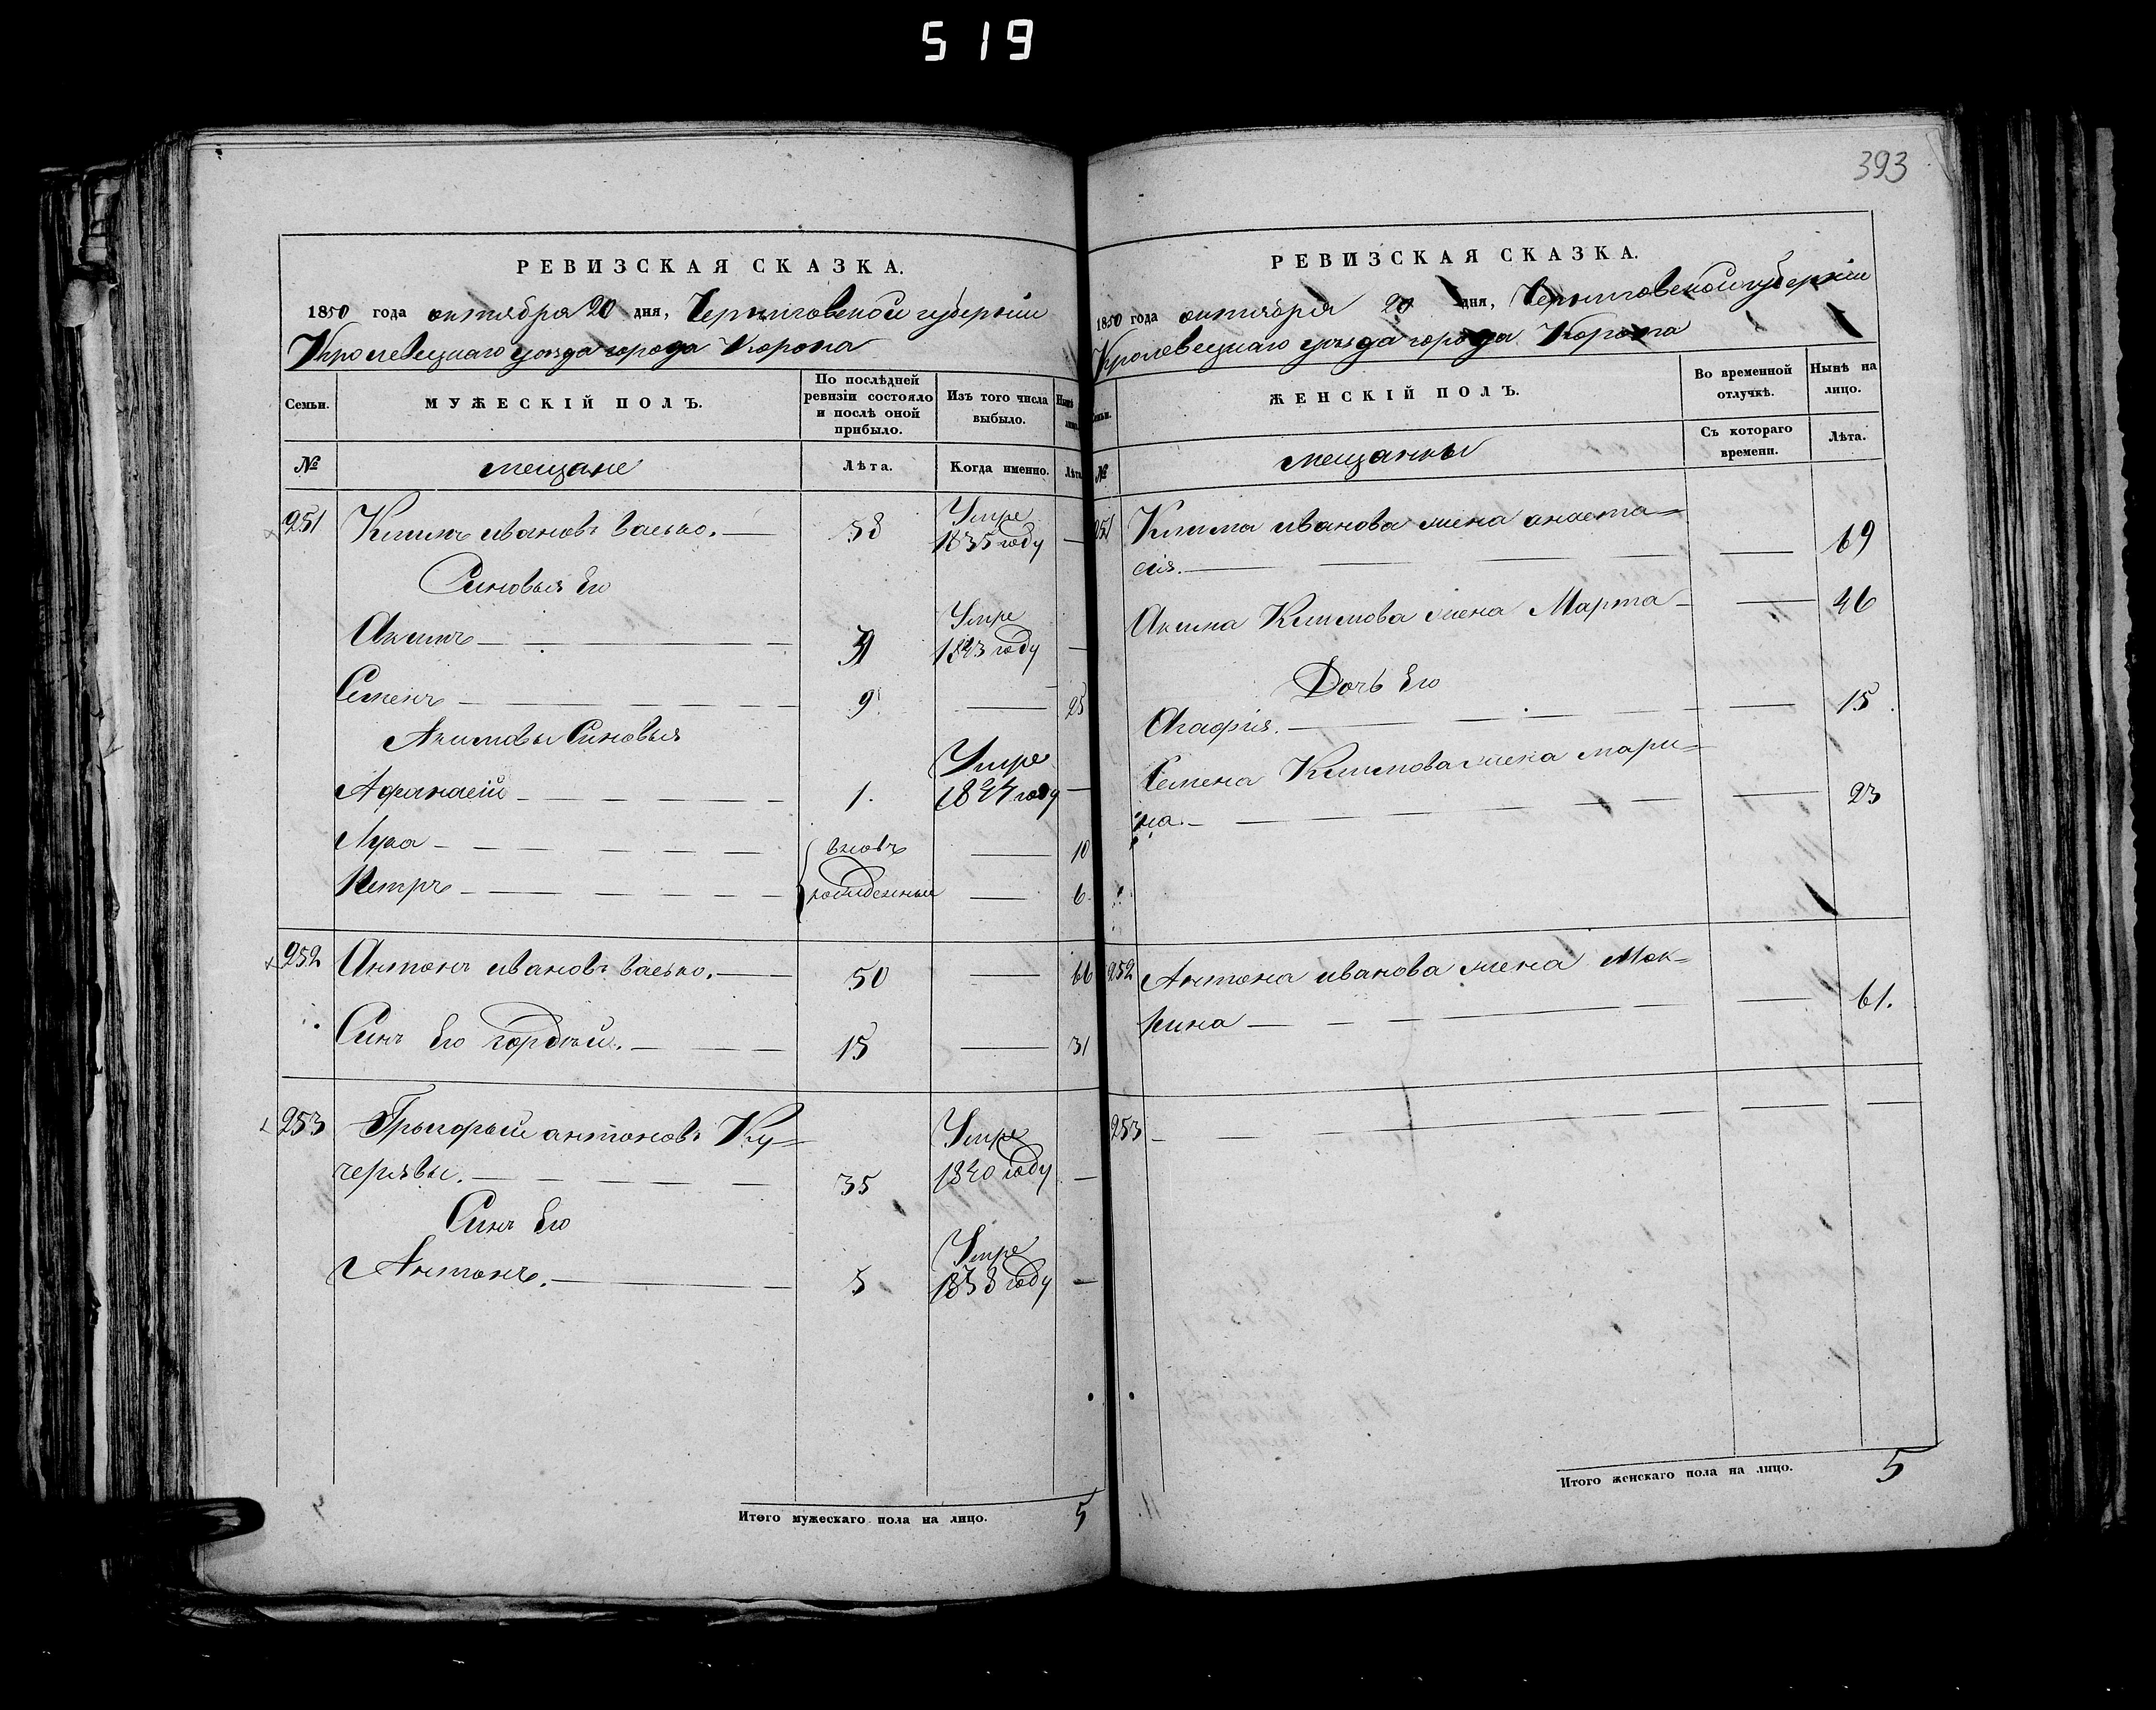 519
РЕВИЗСКАЯ СКАЗКА.
1850 года октября 20 дня, Черниговской губерніи
Кролевецкаго уезда города Коропа
Семьи.
МУЖЕСКІЙ ПОЛЪ.
По послѣдней ревизіи состояло и послѣ оной прибыло.
Изъ того числа выбыло.
Нынѣ
№
мещане
Лѣта.
Когда именно.
Лѣта
251 Климъ ивановъ васько. — 58 Умре 1835 году —
Синовья Его
Акимъ — 31 Умре 1843 году —
Семенъ — 9 — 25
Акимовы Синовья
Афанасій — 1. Умре 1844 году —
Лука — вновь — 10
Петръ — рожденныи — 6.
252 Антонъ ивановъ васько. — 50 — 66
Синъ Его гордѣй. — 15 — 31
253 Григорыи антоновъ Ку=
черявы. — 35 Умре 1840 году —
Синъ Его
Антонъ. — 5 Умре 1838 году —
Итого мужескаго пола на лицо. 5
393
РЕВИЗСКАЯ СКАЗКА.
1850 года октября 20 дня, Черниговской губерніи
Кролевецкаго уезда города Коропа
ЖЕНСКІЙ ПОЛЪ.
Во временной отлучкѣ.
Нынѣ на лицо.
№
мещанкы
Съ котораго времени.
Лѣта.
251 Клима иванова жена анаста=
сия. — — 69
Акима Климова жена Марта — — 46
Дочь Его
Агафия. — — 15.
Семена Климова жена мари=
на. — — 23
252 Антона иванова жена Мок=
рина — — 61.
253 — — —
Итого женскаго пола на лицо. 5